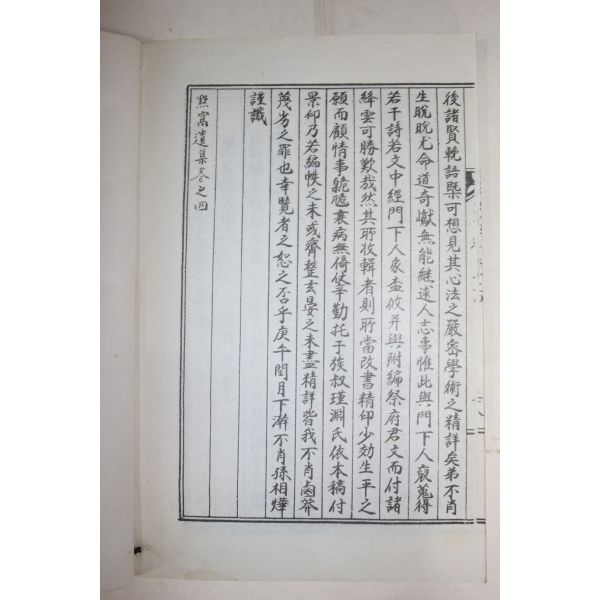 後諸賢輓語槩可想見其心法之嚴密學術之精詳矣弟不肖
生晩晩尤命道奇巇無能継述人志事惟此與門下人裒蒐得
若干詩若文中經門下人家盡攸并與附編祭府君文而付諸
絳雲可勝歎哉然其所收輯者則所當改書精印少効生平之
願而顧情事䠱䠥衰病無倚仗辛勤托于族叔瑾淵氏依本稿付
景印乃若編帙之未或齊整玄晏之未盡精詳皆我不肖鹵莽
蔑劣之罪也幸覽者之恕之否乎庚午閏月下澣不肖孫相燁
謹識
點窩遺集卷之四